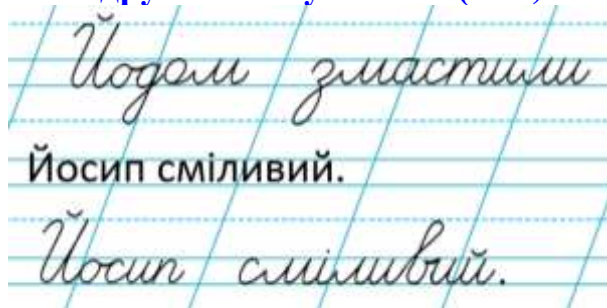 Йодом змастили
Йосип сміливий.
Йосип сміливий.